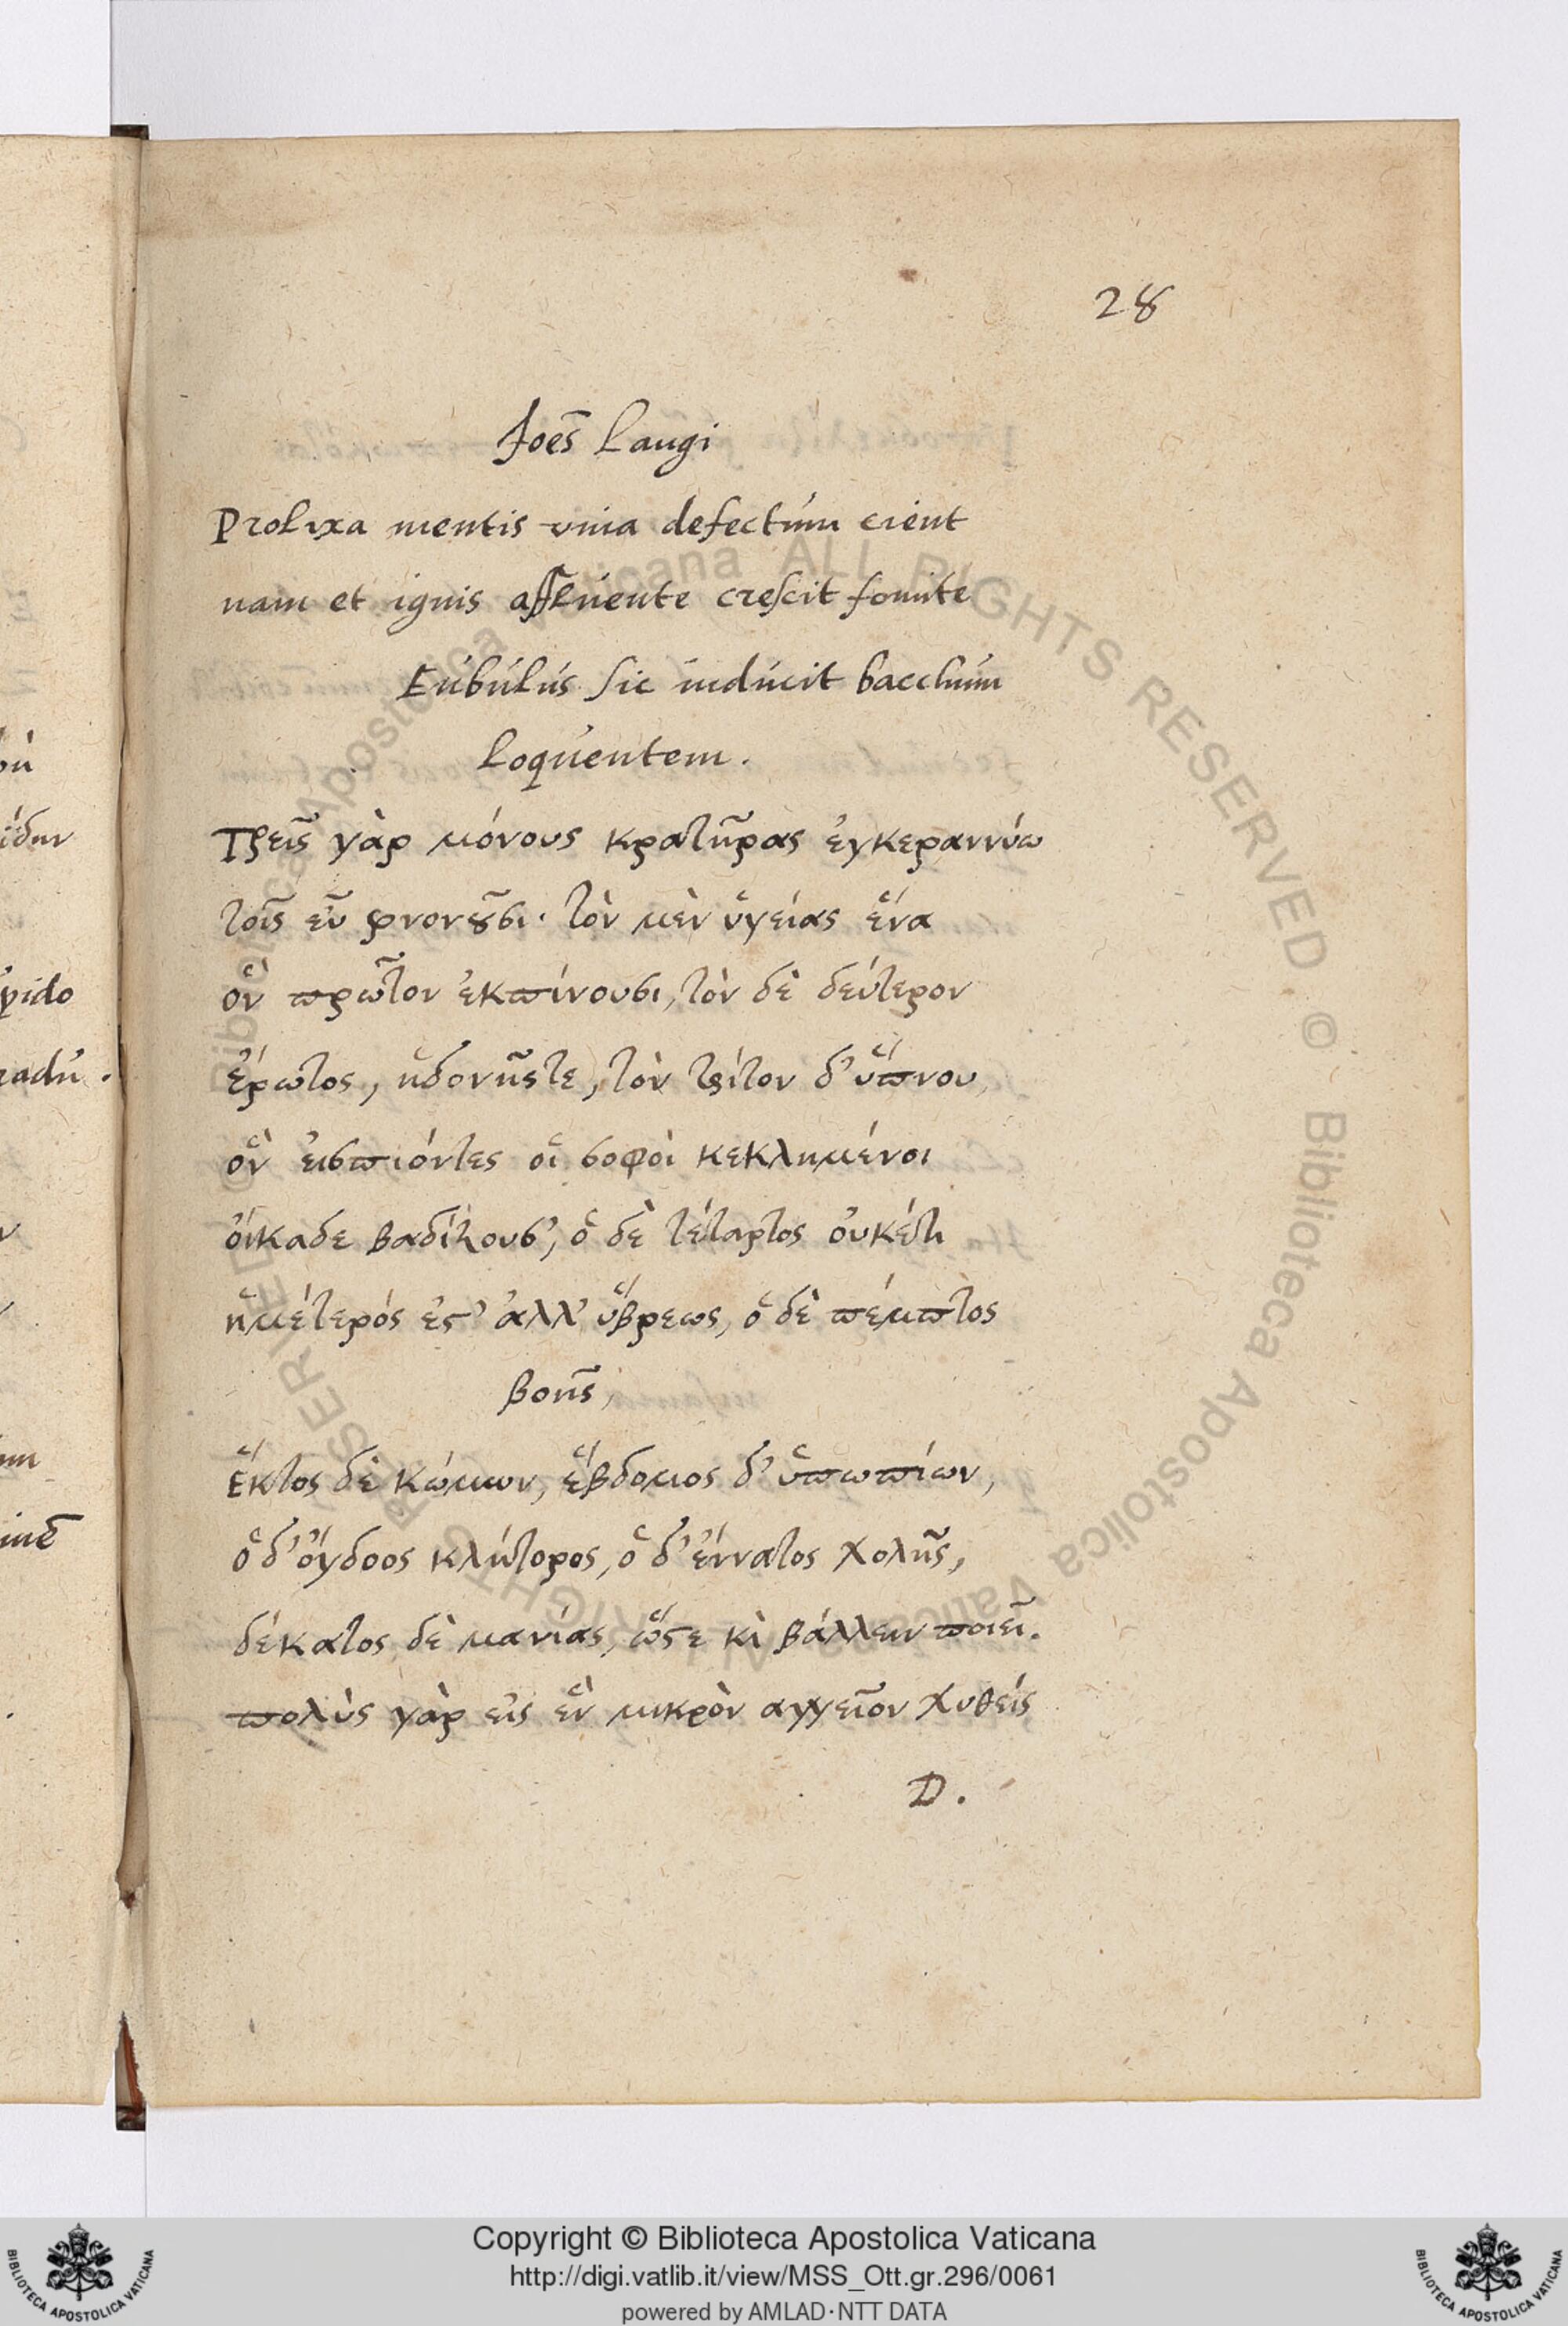 28
Joēs Langi
Prolixa mentis vina defectum cient
nam et ignis affluente crescit fomite
Eubulus sic inducit bacchum
loquentem.
Τρεῖς γὰρ μόνους κρατῆρας ἐγκεραννύω
τοῖς εὖ φνονοῦσι· τὸν μὲν ὑγείας ἕνα
ὃν πρῶτον ἐκπίνουσι, τὸν δὲ δεύτερον
ἔρωτος, ἡδονῆςτε, τὸν τρίτον δ' ὕπνου,
ὃν ἐισπιόντες οἱ σοφοὶ κεκλημένοι
ὀίκαδε βαδίζουσ', ὁ δὲ τέταρτος ὀυκέτι
ἡμέτερός ἐστ' ἀλλ' ὕβρεως, ὁ δὲ πέμπτος
βοῆς,
Ἕκτος δὲ κώμων, ἕβδομος δ' ὑπωπίων,
ὁ δ' ὄγδοος κλήτορος, ὁ δ' ἔννατος χολῆς,
δέκατος δὲ μανίας, ὥστε κὶ βάλλειν ποιεῖ.
πολὺς γὰρ εἰς ἓν μικρὸν αγγεῖον χυθείς
D.
ίδην
Copyright © Biblioteca Apostolica Vaticana
http://digi.vatlib.it/view/MSS_Ott.gr.296/0061
powered by AMLAD·NTT DATA
BIBLIOTECA APOSTOLICA VATICANA
BIBLIOTECA APOSTOLICA VATICANA